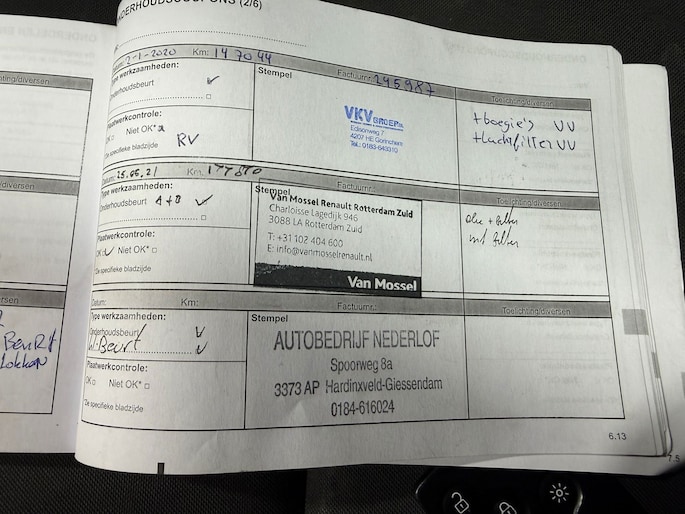 ONDERHOUDSCOUPONS (2/6)
Datum: 2-1-2020 Km: 147044
Type werkzaamheden:
Onderhoudsbeurt
Plaatwerkcontrole:
OK Niet OK*
De specifieke bladzijde RV
Stempel Factuurnr.: 245987
VKV GROEP
Edisonweg 7
4207 HE Gorinchem
Tel.: 0183-643310
Toelichting/diversen
+ boegie's VV
+ luchtfilter VV
Datum: 25.05.21 Km:
Type werkzaamheden:
Onderhoudsbeurt A+B
Plaatwerkcontrole:
OK Niet OK*
De specifieke bladzijde
Stempel Factuurnr.:
Van Mossel Renault Rotterdam Zuid
Charloisse Lagedijk 946
3088 LA Rotterdam Zuid
T: +31 102 404 600
E: info@vanmosselrenault.nl
Van Mossel
Toelichting/diversen
olie + filter
int filter
Datum: Km:
Type werkzaamheden:
Onderhoudsbeurt
Beurt
Plaatwerkcontrole:
OK Niet OK*
De specifieke bladzijde
Stempel Factuurnr.:
AUTOBEDRIJF NEDERLOF
Spoorweg 8a
3373 AP Hardinxveld-Giessendam
0184-616024
Toelichting/diversen
6.13
7.5
BEURT